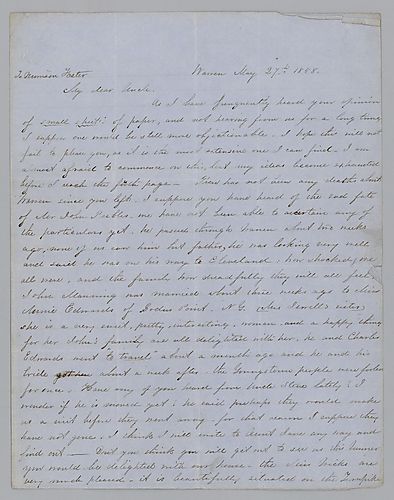 To Newman Foster
Warren May 27th 1858.
My dear Uncle.
As I have frequently heard your opinion
of small sheets of paper, and not hearing from us for a long time
I suppose one would be still more objectionable. I hope this will not
fail to please you, as it is the most extensive one I can find. I am
almost afraid to commence on this, but my ideas become exhausted
before I reach the page — There has not been any deaths about
Warren since you left. I suppose you have heard of the sad fate
of Mr John we have not been able to ascertain any of
the particulars yet. he passed through Warren about two weeks
ago, none of us saw him but father, he was looking very well
and said he was on his way to Cleveland. how shocked, we
all were, and the family how dreadfully they will all feel.
John Manning was married about three weeks ago to Miss
Edwards of Sodus Point. N.Y. Mrs sister,
she is a very sweet, pretty, interesting, woman, and a happy thing
for her John's family are all delighted with her, he and Charles
Edwards went to travel about a month ago and he and his
bride about a week after. the Youngstown people were
for once. Have any of your heard from Uncle lately? I
wonder if he is moved yet? he said perhaps they would make
us a visit before they went away. for that reason I suppose they
have not gone. I think I will write to Aunt Jane any way and
find out — Dont you think you will get out to see us this summer
you would be delighted with our house. the Miss are
very much pleased. it is beautifully situated on the